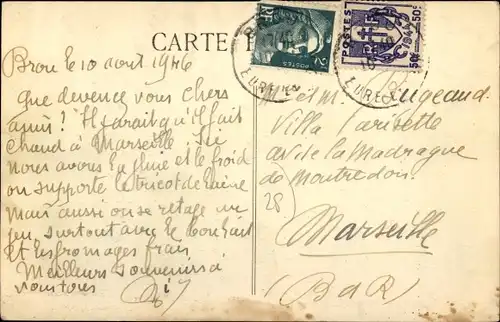 CARTE
Brou le 10 août 1946
Que devenez vous chers
amis? Il parait qu'il fait
chaud à Marseille. Ici
nous avons la pluie et le froid
on supporte le tricot de laine
Mais aussi on se retape un
peu surtout avec le bon lait
et les fromages frais
Meilleurs souvenirs à
vous tous
RF
POSTES
2F
POSTES
RF
1944
50c
50c
EURE-
EURE-
M et M.
Villa
av. de la Madrague
de Montredon
28
Marseille
(B d R)